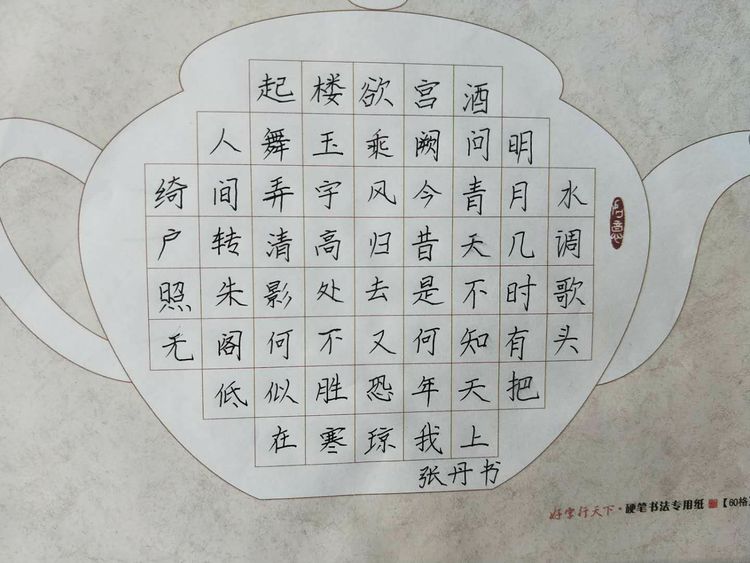 水调歌头
明月几时有把
酒问青天不知天上
宫阙今昔是何年我
欲乘风归去又恐琼
楼玉宇高处不胜寒
起舞弄清影何似在
人间转朱阁低
绮户照无
张丹书
好字行天下·硬笔书法专用纸【60格